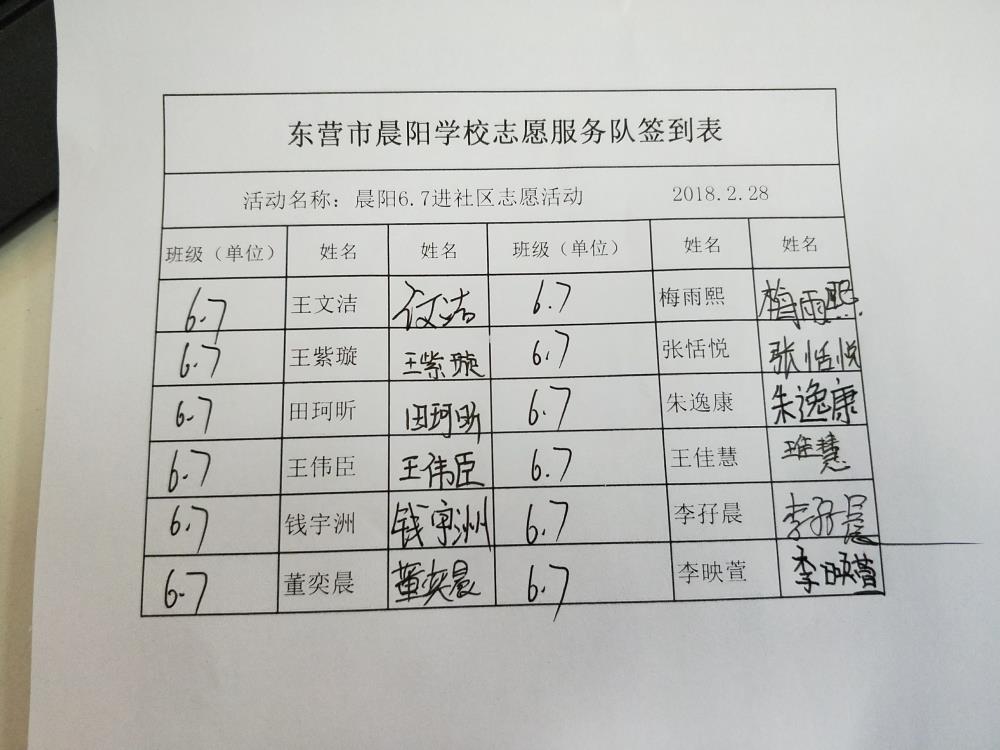 东营市晨阳学校志愿服务队签到表
活动名称：晨阳6.7进社区志愿活动 2018.2.28
班级（单位） 姓名 姓名 班级（单位） 姓名 姓名
6.7 王文洁 文洁 6.7 梅雨熙 梅雨熙
6.7 王紫璇 王紫璇 6.7 张恬悦 张恬悦
6.7 田珂昕 田珂昕 6.7 朱逸康 朱逸康
6.7 王伟臣 王伟臣 6.7 王佳慧 王佳慧
6.7 钱宇洲 钱宇洲 6.7 李孖晨 李孖晨
6.7 董奕晨 董奕晨 6.7 李映萱 李映萱